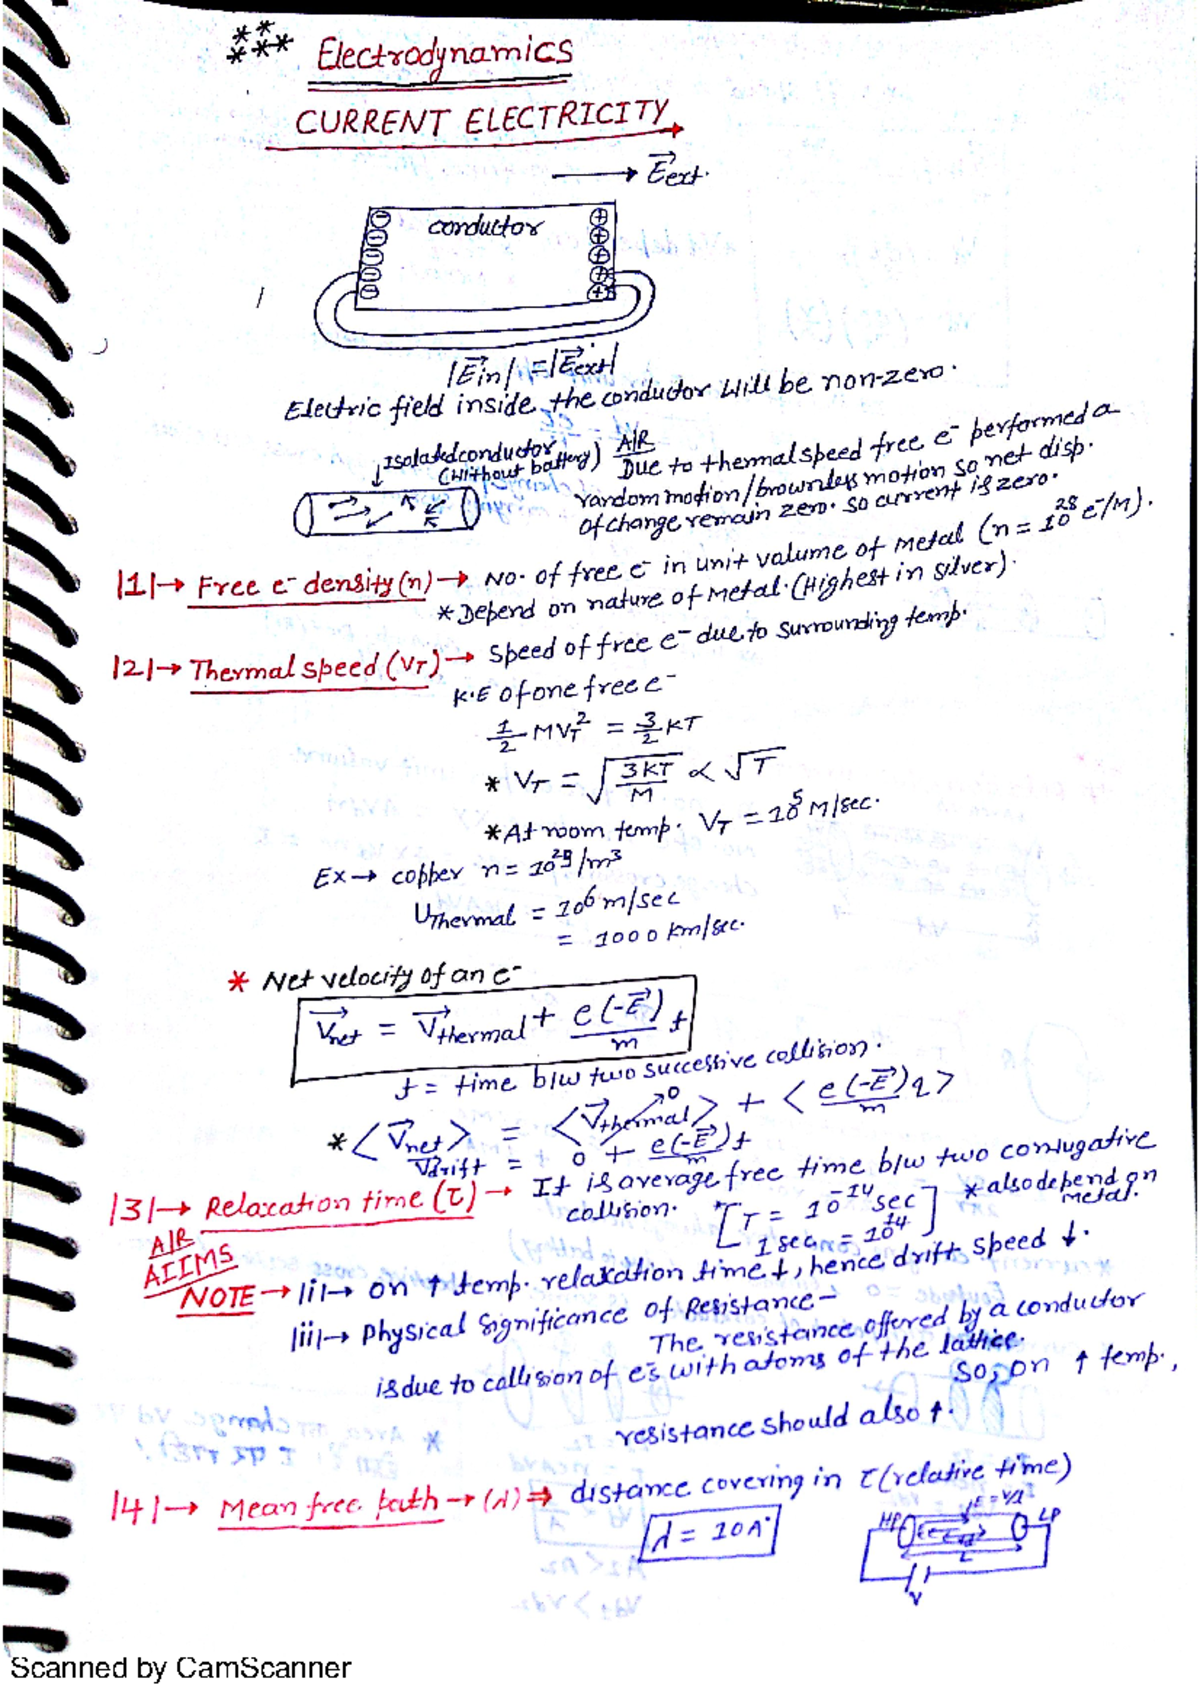 Electrodynamics
CURRENT ELECTRICITY
E⃗ext.
conductor
|E⃗in| = |E⃗ext|
Electric field inside the conductor will be non-zero.
Isolated conductor
(Without battery)
AIR
Due to thermal speed free e⁻ performed a
random motion/brownley motion so net disp.
of change remain zero. so current is zero.
|1|→ Free e⁻ density (n) → No. of free e⁻ in unit volume of metal (n = 10²⁸ e⁻/M).
* Depend on nature of metal. (Highest in silver).
|2|→ Thermal speed (VT) → Speed of free e⁻ due to surrounding temp.
K.E of one free e⁻
1/2 MVT² = 3/2 KT
* VT = √(3KT/M) ∝ √T
* At room temp. VT = 10⁵ M/sec.
Ex → copper n = 10²⁹/m³
UThermal = 10⁶ m/sec
= 1000 km/sec.
* Net velocity of an e⁻
V⃗net = V⃗thermal + e(-E⃗)/m t
t = time b/w two successive collision.
* <V⃗net> = <V⃗thermal>↗0 + <e(-E⃗)/m τ>
V⃗drift = 0 + e(-E⃗)/m t
|3|→ Relaxation time (τ) → It is average free time b/w two conjugative
collision. [τ = 10⁻¹⁴ sec
1 sec = 10¹⁴] * also depend on metal.
AIR
AIIMS
NOTE → |i|→ on ↑ temp. relaxation time ↓, hence drift speed ↓.
|ii|→ Physical Significance of Resistance –
The resistance offered by a conductor
is due to collision of e⁻s with atoms of the lattice.
So, on ↑ temp.,
resistance should also ↑.
|4|→ Mean free path → (λ) ⇒ distance covering in τ (relative time)
λ = 10A°
HP E = V/l LP
L
V
Scanned by CamScanner